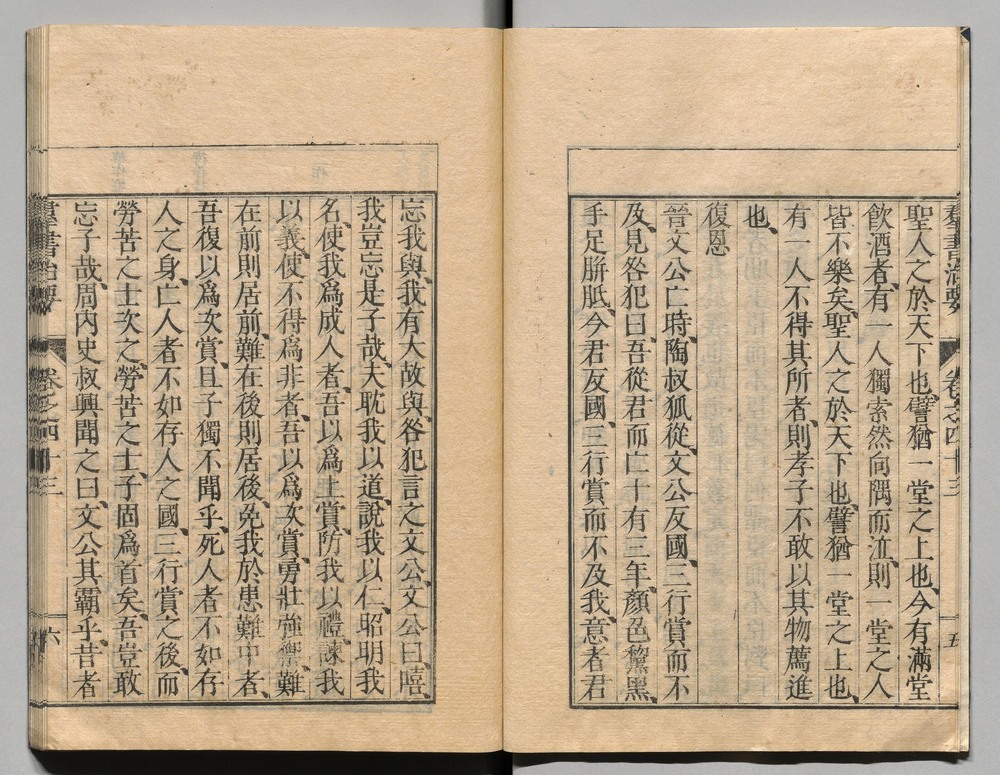 群書治要 卷之四十三 五
聖人之於天下也、譬猶一堂之上也、今有滿堂
飮酒者、有一人獨索然向隅而泣、則一堂之人
皆不樂矣、聖人之於天下也、譬猶一堂之上也、
有一人不得其所者、則孝子不敢以其物薦進
也、
復恩
晉文公亡時、陶叔狐從、文公反國、三行賞而不
及、見咎犯曰、吾從君而亡十有三年、顏色黧黑、
手足胼胝、今君反國、三行賞而不及我、意者君
忘我與、我有大故與、咎犯言之文公、文公曰、嘻、
我豈忘是子哉、夫耽我以道、說我以仁、昭明我
名、使我爲成人者、吾以爲上賞、防我以禮、諫我
以義、使不得爲非者、吾以爲次賞、勇壯強禦、難
在前則居前、難在後則居後、免我於患難中者、
吾復以爲次賞、且子獨不聞乎、死人者不如存
人之身、亡人者不如存人之國、三行賞之後、而
勞苦之士次之、勞苦之士、子固爲首矣、吾豈敢
忘子哉、周內史叔興聞之曰、文公其霸乎、昔者
群書治要 卷之四十三 六